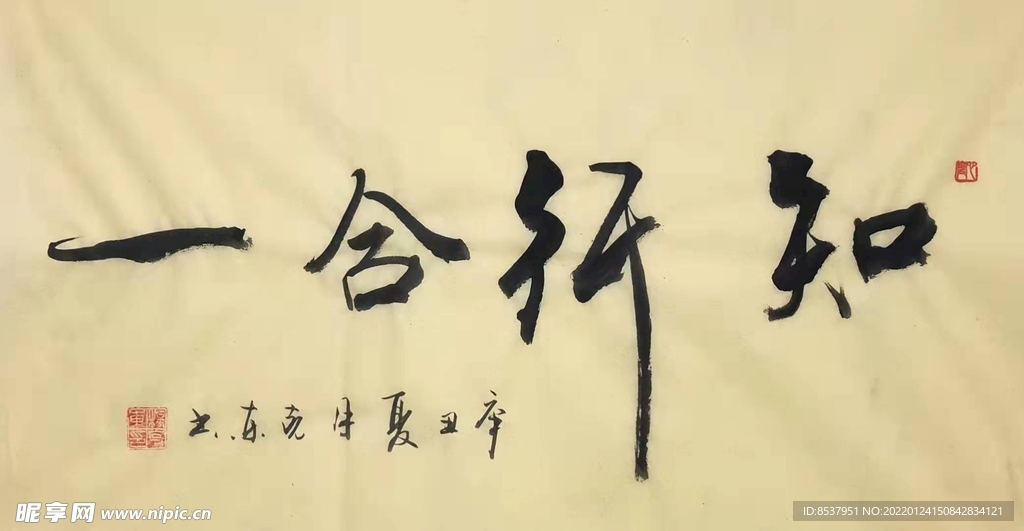 知行合一
辛丑夏月克东书
昵享网 www.nipic.cn
ID:8537951 NO:20220124150842834121